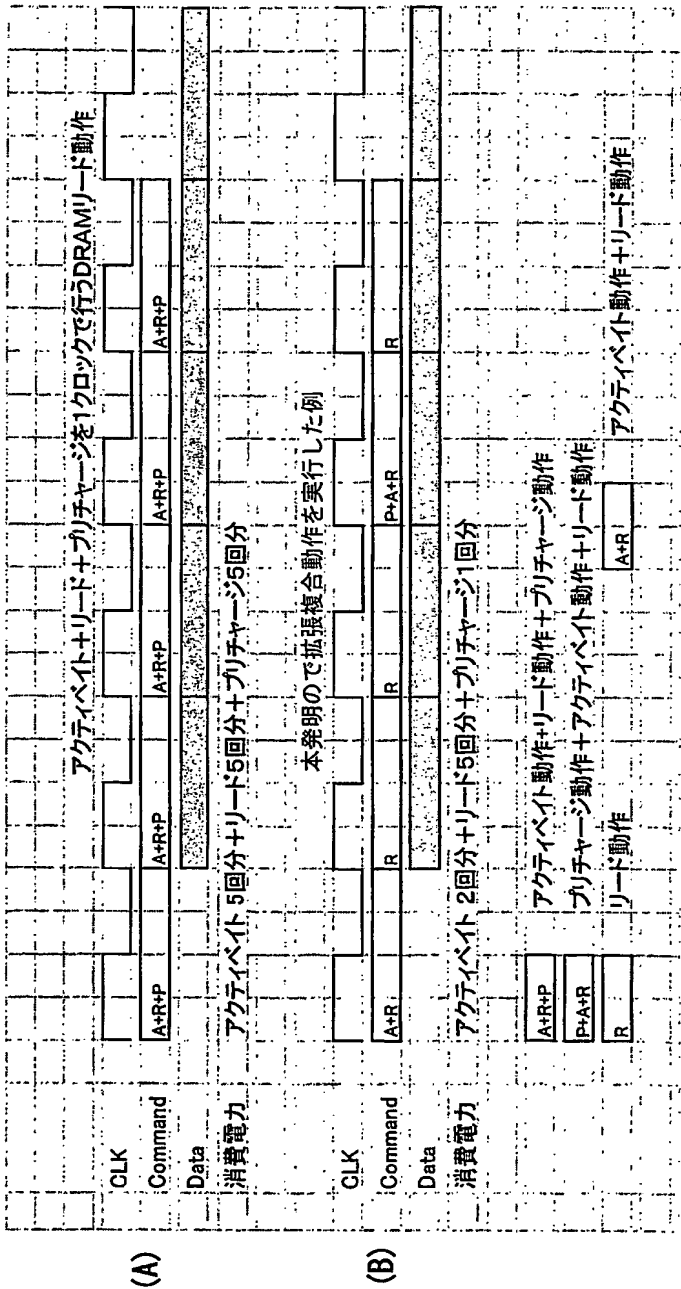 (A)
アクティベイト+リード+プリチャージを1クロックで行うDRAMリード動作
CLK
Command A+R+P A+R+P A+R+P A+R+P A+R+P
Data
消費電力 アクティベイト 5回分+リード5回分+プリチャージ5回分
(B)
本発明ので拡張複合動作を実行した例
CLK
Command A+R R R P+A+R R
Data
消費電力 アクティベイト 2回分+リード5回分+プリチャージ1回分
A+R+P アクティベイト動作+リード動作+プリチャージ動作
P+A+R プリチャージ動作+アクティベイト動作+リード動作
R リード動作 A+R アクティベイト動作+リード動作